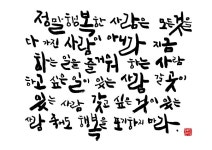 정말 행복한 사람은 모든것을
다 가진 사람이 아니라 지금
하는 일을 즐거워 하는 사람
하고 싶은 일이 있는 사람 갈 곳이
있는 사람 갖고 싶은 것이 있는
사람 죽어도 행복을 포기하지 마라.